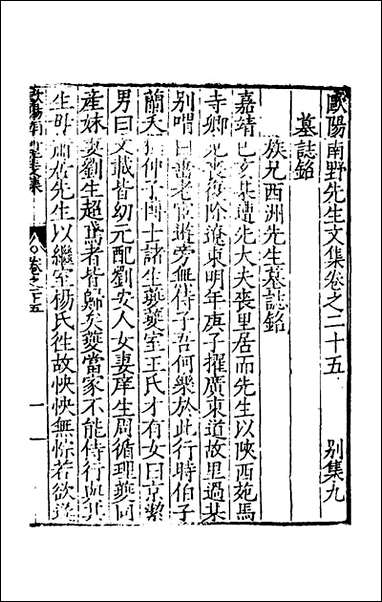 歐陽南野先生文集卷之二十五　別集九
墓誌銘
族兄西洲先生墓誌銘
嘉靖己亥某遭先大夫喪里居而先生以陝西苑馬
寺卿免喪復除遼東明年庚子擢廣東道故里過某
別喟曰嘻老宦遊旁無侍子吾何樂於此行時伯子
蘭夭仲子國士諸生夔夔室王氏才有女曰京潔
男曰文載皆幼元配劉安人女妻庠生周循理夔同
產妹妻劉生超舊者皆歸矣夔當家不能侍行與其
生母肅居先生以繼室楊氏往故怏怏無悰若欲
卷之二十五
一